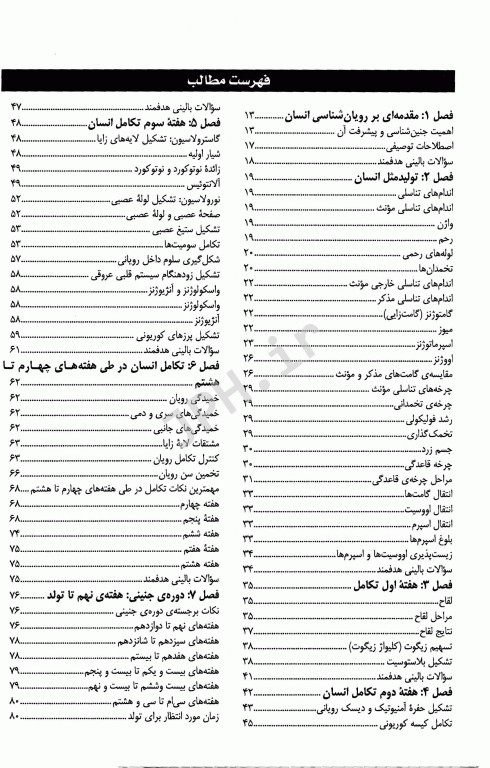 فهرست مطالب
فصل ۱: مقدمه‌ای بر رویان‌شناسی انسان.............۱۳
اهمیت جنین‌شناسی و پیشرفت آن.............۱۳
اصطلاحات توصیفی.............۱۷
سؤالات بالینی هدفمند.............۱۸
فصل ۲: تولیدمثل انسان.............۱۹
اندام‌های تناسلی.............۱۹
اندام‌های تناسلی مؤنث.............۱۹
واژن.............۱۹
رحم.............۱۹
لوله‌های رحمی.............۲۰
تخمدان‌ها.............۲۰
اندام‌های تناسلی خارجی مؤنث.............۲۲
اندام‌های تناسلی مذکر.............۲۲
گامتوژنز (گامت‌زایی).............۲۲
میوز.............۲۲
اسپرماتوژنز.............۲۳
اووژنز.............۲۶
مقایسه‌ی گامت‌های مذکر و مؤنث.............۲۶
چرخه‌های تناسلی مؤنث.............۲۹
چرخه‌ی تخمدانی.............۲۹
رشد فولیکولی.............۲۹
تخمک‌گذاری.............۲۹
جسم زرد.............۳۰
چرخه قاعدگی.............۳۰
مراحل چرخه‌ی قاعدگی.............۳۱
انتقال گامت‌ها.............۳۳
انتقال اووسیت.............۳۳
انتقال اسپرم.............۳۳
بلوغ اسپرم‌ها.............۳۳
زیست‌پذیری اووسیت‌ها و اسپرم‌ها.............۳۴
سؤالات بالینی هدفمند.............۳۴
فصل ۳: هفتهٔ اول تکامل.............۳۵
لقاح.............۳۵
مراحل لقاح.............۳۵
نتایج لقاح.............۳۷
تسهیم زیگوت (کلیواژ زیگوت).............۳۸
تشکیل بلاستوسیست.............۳۸
سؤالات بالینی هدفمند.............۴۱
فصل ۴: هفتهٔ دوم تکامل انسان.............۴۲
تشکیل حفرهٔ آمنیوتیک و دیسک رویانی.............۴۳
تکامل کیسه کوریونی.............۴۵
سؤالات بالینی هدفمند.............۴۷
فصل ۵: هفتهٔ سوم تکامل انسان.............۴۸
گاسترولاسیون: تشکیل لایه‌های زایا.............۴۸
شیار اولیه.............۴۸
زائدهٔ نوتوکورد و نوتوکورد.............۴۹
آلانتوئیس.............۴۹
نورولاسیون: تشکیل لولهٔ عصبی.............۵۲
صفحهٔ عصبی و لولهٔ عصبی.............۵۲
تشکیل ستیغ عصبی.............۵۳
تکامل سومیت‌ها.............۵۳
شکل‌گیری سلوم داخل رویانی.............۵۷
تشکیل زودهنگام سیستم قلبی عروقی.............۵۸
واسکولوژنز و آنژیوژنز.............۵۸
واسکولوژنز.............۵۸
آنژیوژنز.............۵۸
تشکیل پرزهای کوریونی.............۵۹
سؤالات بالینی هدفمند.............۶۱
فصل ۶: تکامل انسان در طی هفته‌های چهارم تا
هشتم.............۶۲
خمیدگی رویان.............۶۲
خمیدگی‌های سری و دمی.............۶۲
خمیدگی‌های جانبی.............۶۲
مشتقات لایهٔ زایا.............۶۳
کنترل تکامل رویان.............۶۳
تخمین سن رویان.............۶۶
مهمترین نکات تکامل در طی هفته‌های چهارم تا هشتم.............۶۸
هفته چهارم.............۶۸
هفتهٔ پنجم.............۶۸
هفته ششم.............۷۴
هفتهٔ هفتم.............۷۵
هفته هشتم.............۷۵
سؤالات بالینی هدفمند.............۷۵
فصل ۷: دوره‌ی جنینی: هفته‌ی نهم تا تولد.............۷۶
نکات برجسته‌ی دوره‌ی جنینی.............۷۶
هفته‌های نهم تا دوازدهم.............۷۶
هفته‌های سیزدهم تا شانزدهم.............۷۸
هفته‌های هفدهم تا بیستم.............۷۸
هفته‌های بیست و یکم تا بیست و پنجم.............۷۹
هفته‌های بیست وششم تا بیست و نهم.............۷۹
هفته‌های سی‌ام تا سی و هشتم.............۸۰
زمان مورد انتظار برای تولد.............۸۰